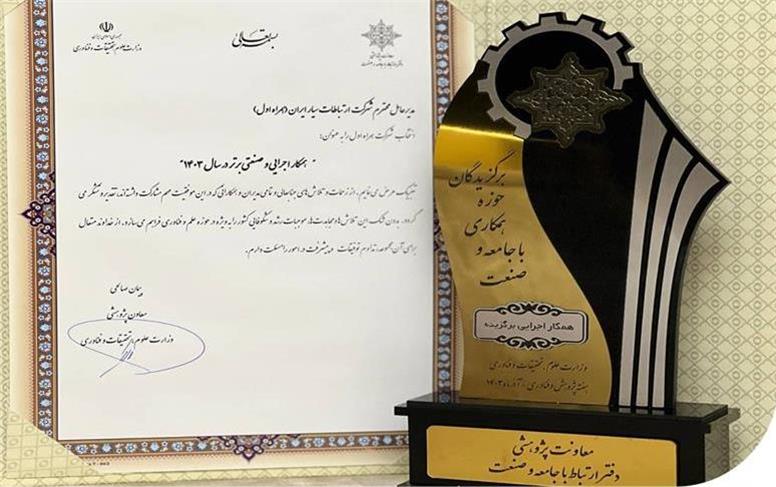 جمهوری اسلامی ایران
وزارت علوم، تحقیقات و فناوری
بسمه تعالی
مدیرعامل محترم شرکت ارتباطات سیار ایران (همراه اول)
انتخاب شرکت همراه اول را به عنوان:
"همکار اجرایی و صنعتی برتر در سال ۱۴۰۳"
تبریک عرض می نمایم. از زحمات و تلاش های جنابعالی و تمامی مدیران و همکارانی که در این موفقیت سهم و مشارکت داشته‌اند، تقدیر و تشکر می
گردد. بدون شک، این تلاش‌ها و مجاهدت‌ها، موجبات رشد و شکوفایی کشور را به ویژه در حوزه علم و فناوری فراهم می سازد. از خداوند متعال
برای آن مجموعه، تداوم توفیقات و پیشرفت در امور را مسئلت دارم.
پیمان صالحی
معاون پژوهشی
وزارت علوم، تحقیقات و فناوری
برگزیدگان
حوزه
همکاری
با جامعه و
صنعت
همکار اجرایی برگزیده
وزارت علوم، تحقیقات و فناوری
هفته پژوهش و فناوری / آذرماه ۱۴۰۳
معاونت پژوهشی
دفتر ارتباط با جامعه و صنعت